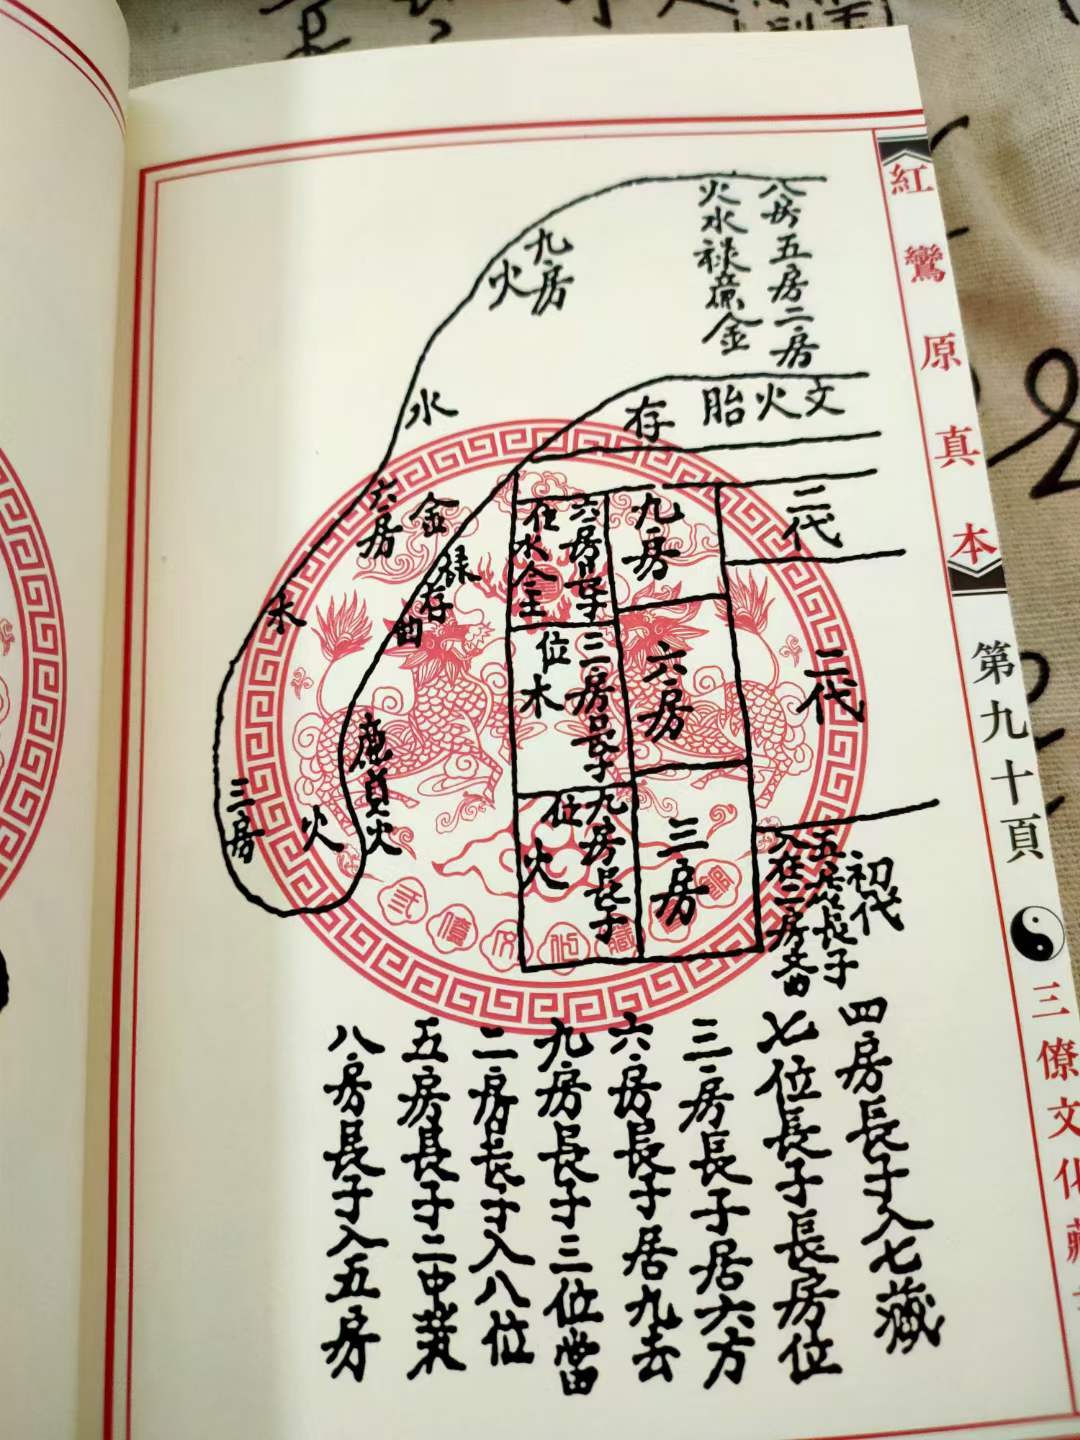 紅鸞原真本
第九十頁
三僚文化藏
八房五房二房
火水祿廉金
九房
火
水
文火胎存
二代
六房
金
祿存
木
廉貞火
三房
火
九房
六房長子
位水金
六房
三房長子
位木
三房
九房長子
位火
二代
初代
五房長子
入在二房當
四房長子入七藏
七位長子長房位
三房長子居六方
六房長子居九去
九房長子三位當
二房長子入八位
五房長子二中業
八房長子入五房